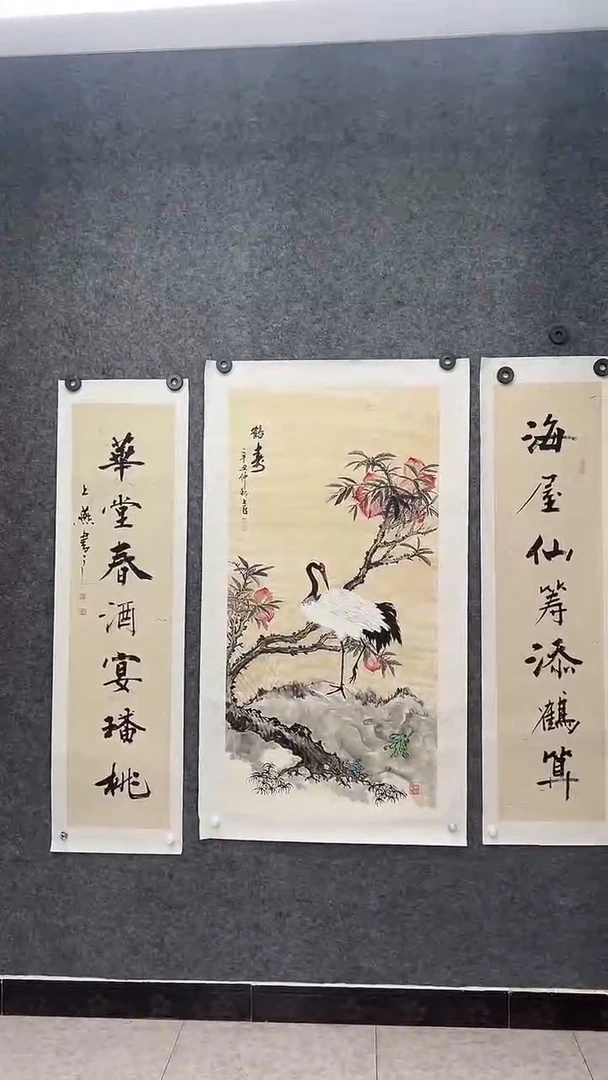 海屋仙筹添鶴算
鶴壽
辛丑仲秋
華堂春酒宴璠桃
上燕書